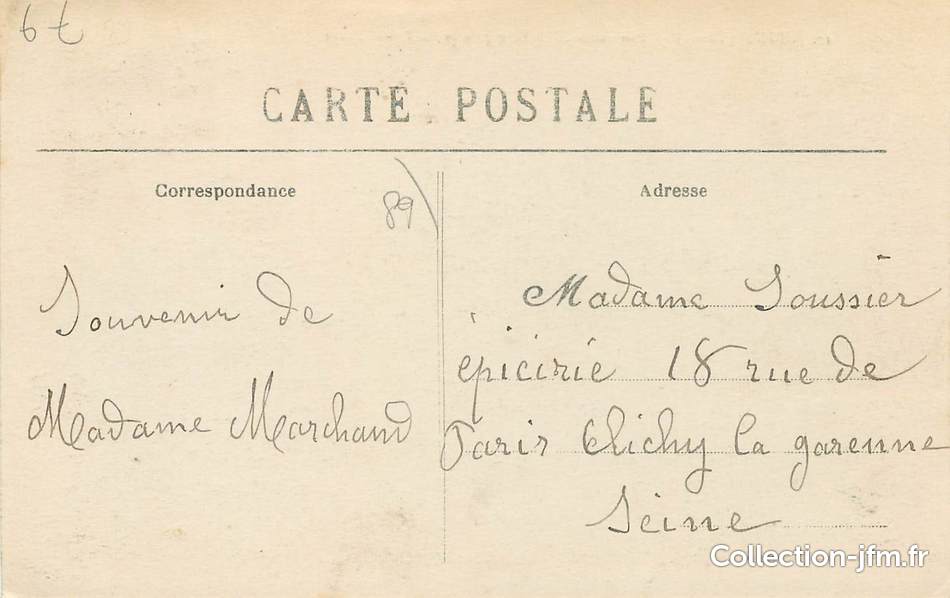 67
CARTE POSTALE
Correspondance
Adresse
89
Souvenir de
Madame Marchand
Madame Soussier
épicirié 18 rue de
Paris Clichy la garenne
Seine
Collection-jfm.fr